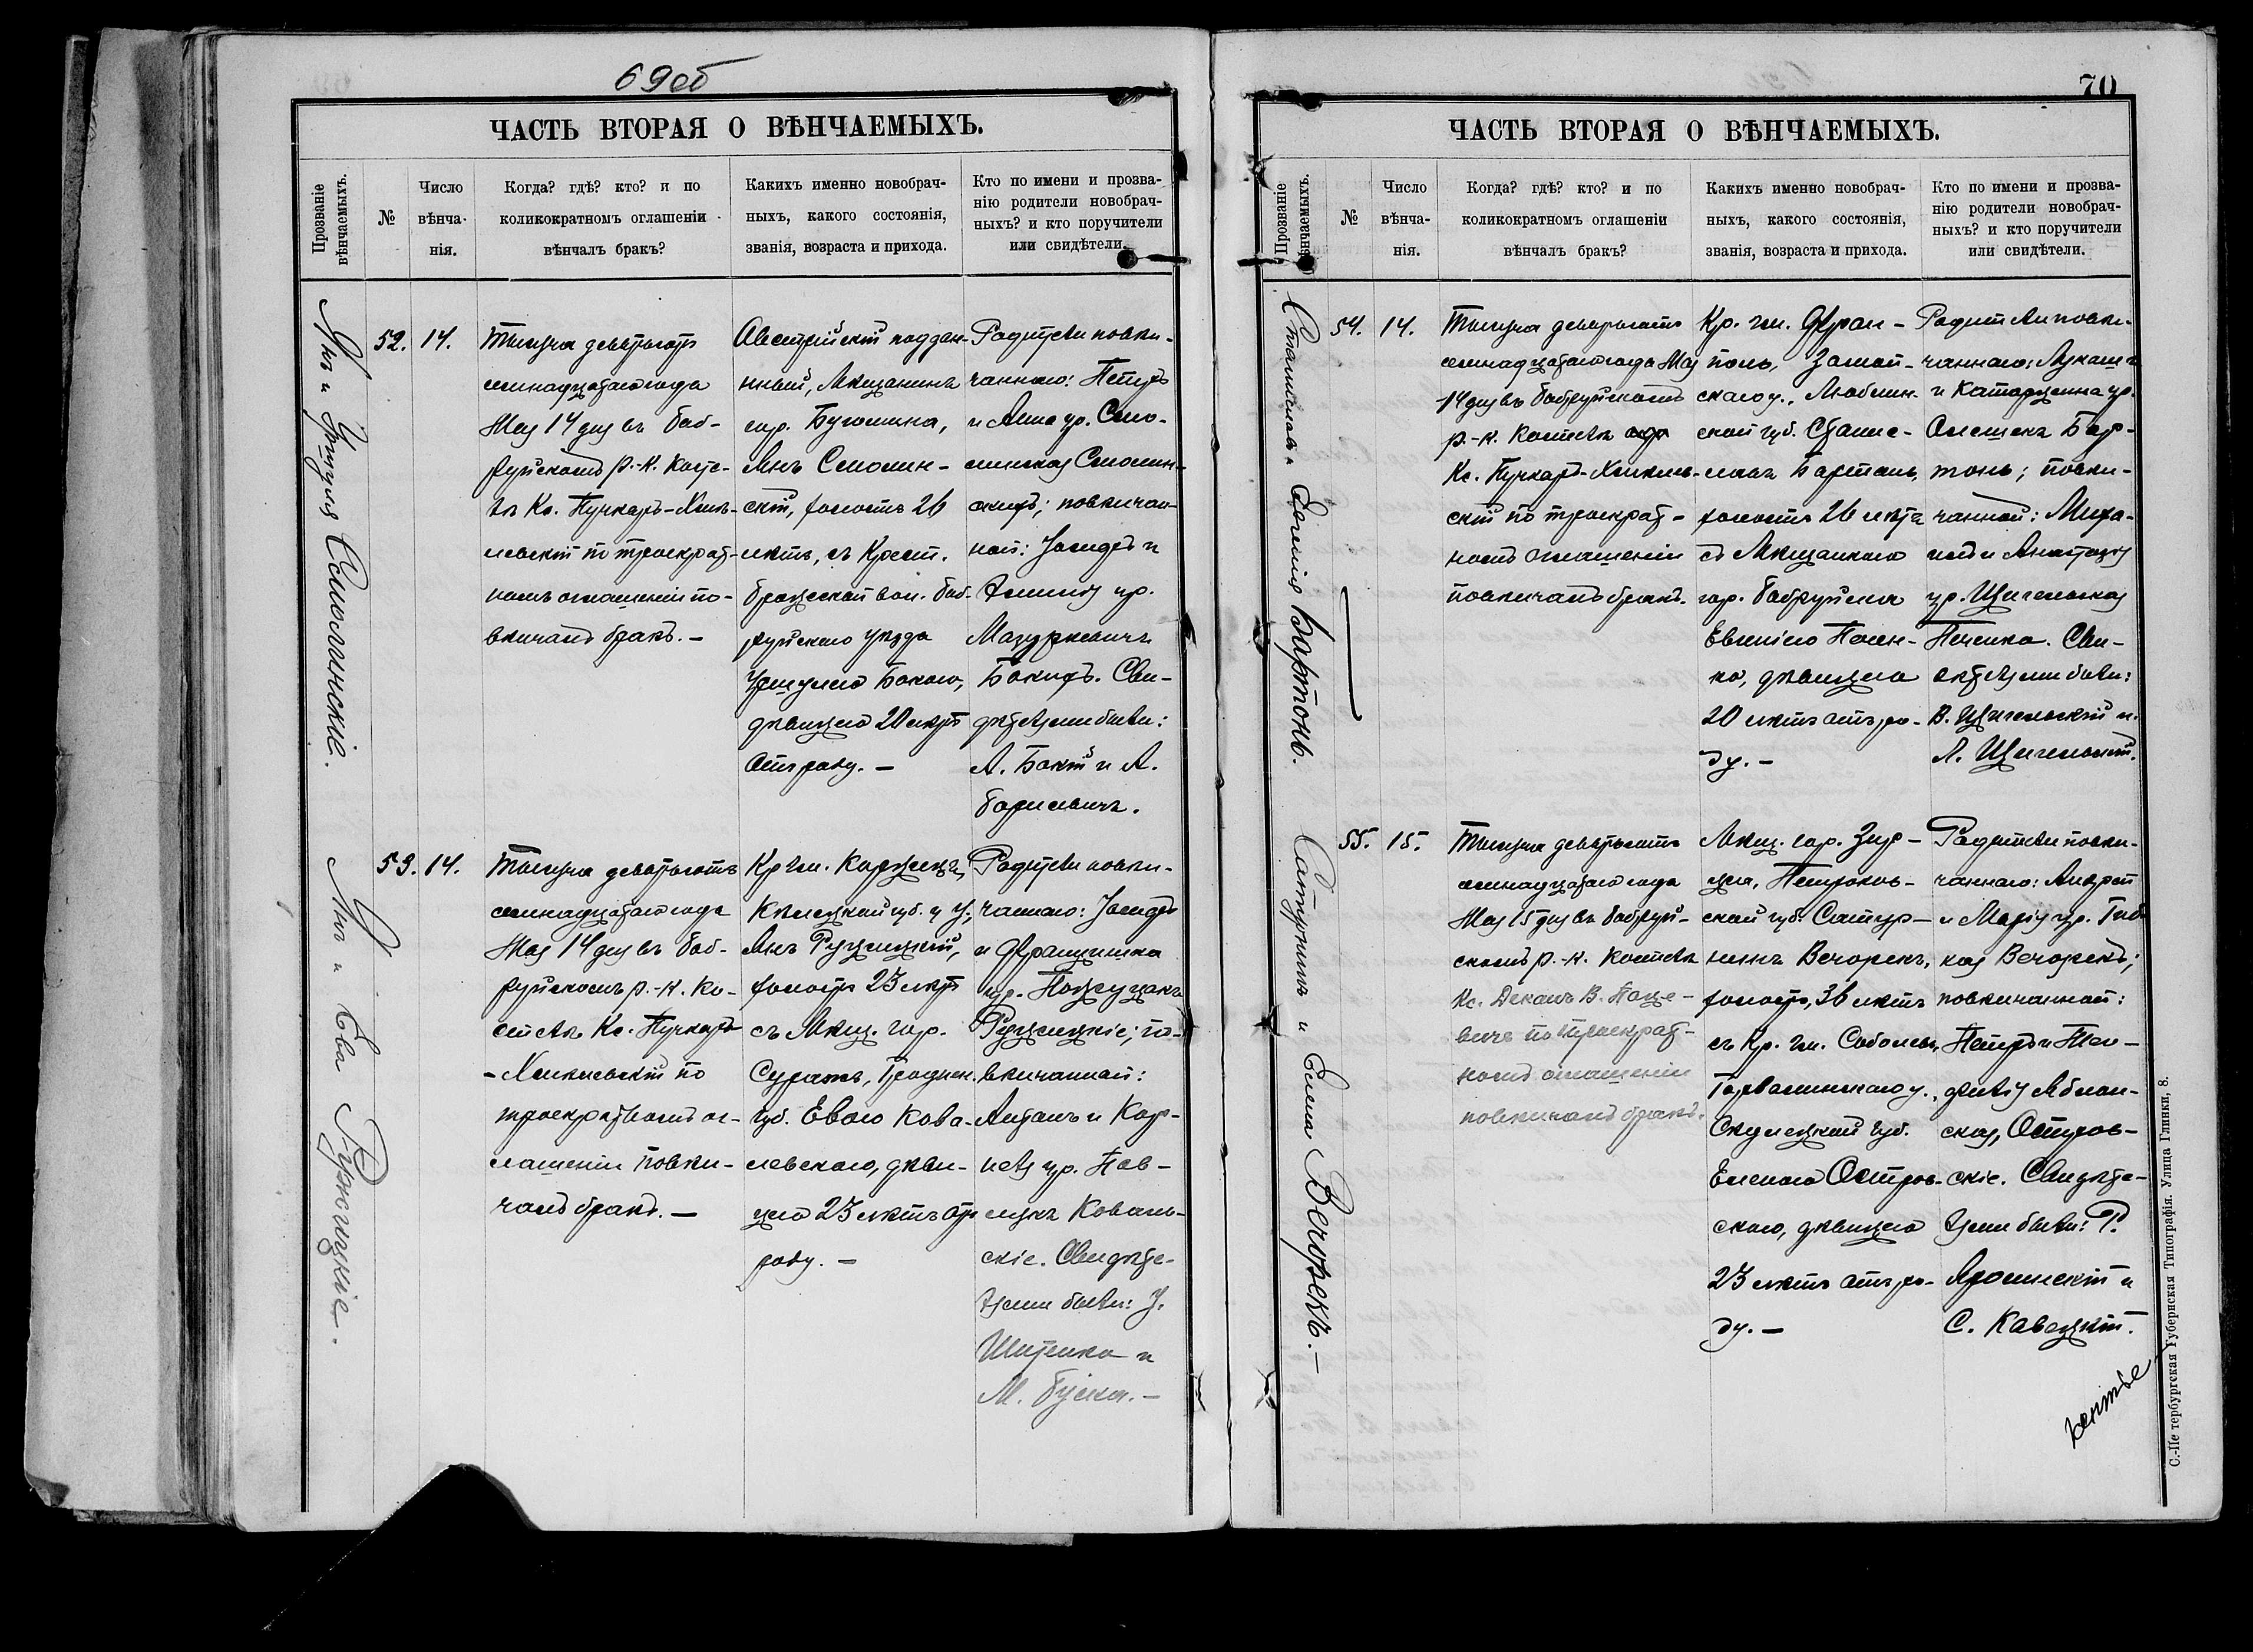 69об
ЧАСТЬ ВТОРАЯ О ВѢНЧАЕМЫХЪ.
Прозваніе вѣнчаемыхъ.
№
Число
вѣнча-
нія.
Когда? гдѣ? кто? и по
коликократномъ оглашеніи
вѣнчалъ бракъ?
Какихъ именно новобрач-
ныхъ, какого состоянія,
званія, возраста и прихода.
Кто по имени и прозва-
нію родители новобрач-
ныхъ? и кто поручители
или свидѣтели.
Янъ и Уршуля Смолинскіе.
52. 14.
Тысяча девятьсотъ
семнадцатаго года
Мая 14 дня въ Боб-
руйскомъ р.-к. Косте-
лѣ Кс. Пучкаръ-Хмѣ-
левскій по троекрат-
номъ оглашеніи по-
вѣнчалъ бракъ. —
Австрійскій поддан-
ный, Мѣщанинъ
гор.
Янъ Смолин-
скій, холостъ 26
лѣтъ, съ Крест.
Бродецкой вол. Боб-
руйскаго уѣзда
Уршулею Бокою,
дѣвицею 20 лѣтъ
отъ роду. —
Родители повѣн-
чаннаго: Петръ
и Анна ур.
Смолин-
скихъ; повѣнчан-
ной: Іосифъ и
ур.
Мазуркевичъ
Бокихъ. Сви-
дѣтелями были:
А. Бокій и А.
Борисевичъ.
Янъ и Ева Русецкіе.
53. 14.
Тысяча девятьсотъ
семнадцатаго года
Мая 14 дня въ Боб-
руйскомъ р.-к. Ко-
стелѣ Кс. Пучкаръ
-Хмѣлевскій по
троекратномъ ог-
лашеніи повѣн-
чалъ бракъ. —
Кр. гм.
Кѣлецкой губ. и у.,
Янъ
холостъ 23 лѣтъ
съ Мѣщ. гор.
Суражъ, Гроднен.
губ. Евою Кова-
левскою, дѣви-
цею 23 лѣтъ отъ
роду. —
Родители повѣн-
чаннаго: Іосифъ
и Францишка
ур.
по-
вѣнчанной:
Антонъ и Кор-
нелія ур. Пав-
Коваль-
скіе. Свидѣте-
лями были: І.
и
М.
70
ЧАСТЬ ВТОРАЯ О ВѢНЧАЕМЫХЪ.
Прозваніе вѣнчаемыхъ.
№
Число
вѣнча-
нія.
Когда? гдѣ? кто? и по
коликократномъ оглашеніи
вѣнчалъ бракъ?
Какихъ именно новобрач-
ныхъ, какого состоянія,
званія, возраста и прихода.
Кто по имени и прозва-
нію родители новобрач-
ныхъ? и кто поручители
или свидѣтели.
Станиславъ и Евгенія Бартонь.
54. 14.
Тысяча девятьсотъ
семнадцатаго года Мая
14 дня въ Бобруйскомъ
р.-к. Костелѣ
Кс. Пучкаръ-Хмѣлев-
скій по троекрат-
номъ оглашеніи
повѣнчалъ бракъ.
Кр. гм. Фран-
поль, Замой-
скаго у., Люблин-
ской губ. Станис-
лавъ Бартонь,
холостъ 26 лѣтъ
съ Мѣщанкою
гор. Бобруйска
Евгеніею Печен-
ко, дѣвицею
20 лѣтъ отъ ро-
ду. —
Родители повѣн-
чаннаго: Лукашъ
и Катаржина ур.
Бар-
тонь; повѣн-
чанной: Миха-
илъ и Анастазія
ур. Щигельская
Печенко. Сви-
дѣтелями были:
В. Щигельскій и
Л. Щигельскій.
Сатурнинъ и Елена Вечорекъ. —
55. 15.
Тысяча девятьсотъ
семнадцатаго года
Мая 15 дня въ Бобруй-
скомъ р.-к. Костелѣ
Кс. Деканъ В. Паце-
вичъ по троекрат-
номъ оглашеніи
повѣнчалъ бракъ.
Мѣщ. гор.
Петроков-
ской губ. Сатур-
нинъ Вечорекъ,
холостъ, 36 лѣтъ
съ Кр. гм. Соболевъ,
Гарволинскаго у.,
Сѣдлецкой губ.
Еленою Остров-
скою, дѣвицею
23 лѣтъ отъ ро-
ду. —
Родители повѣн-
чаннаго: Андрей
и Марія ур.
Вечорекъ;
повѣнчанной:
Петръ и Тео-
филія Яблон-
ская, Остров-
скіе. Свидѣте-
лями были: Р.
и
С. Кавецкій.
С.-Петербургская Губернская Типографія. Улица Глинки, 8.